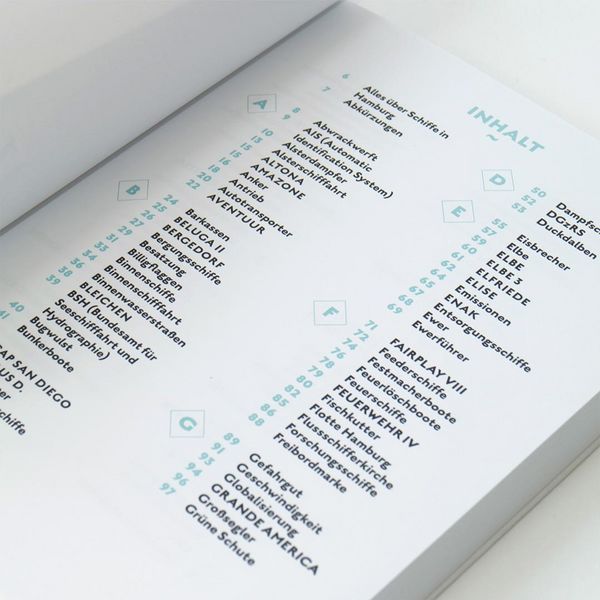 INHALT
~
6 Alles über Schiffe in
Hamburg
7 Abkürzungen
A
8 Abwrackwerft
9 AIS (Automatic
Identification System)
10 Alsterdampfer
13 Alsterschifffahrt
15 ALTONA
15 AMAZONE
16 Anker
18 Antrieb
20 Autotransporter
22 AVENTUUR
B
24 Barkassen
BELUGA II
BERGEDORF
Bergungsschiffe
Besatzung
Billigflaggen
Binnenschiffe
Binnenwasserstraßen
BLEICHEN
BSH (Bundesamt für
Seeschifffahrt und
Hydrographie)
40 Bugwulst
41 Bunkerboote
AP SAN DIEGO
US D.
er
schiffe
D
50 Dampfsc
52 DGzRS
53 Duckdalben
E
55 Eisbrecher
Elbe
ELBE
ELBE 3
ELFRIEDE
ELISE
Emissionen
ENAK
67 Entsorgungsschiffe
68 Ewer
69 Ewerführer
F
71 FAIRPLAY VIII
72 Feederschiffe
74 Festmacherboote
76 Feuerlöschboote
78 Feuerschiffe
79 FEUERWEHR IV
80 Fischkutter
82 Flotte Hamburg
85 Flussschifferkirche
86 Forschungsschiffe
88 Freibordmarke
G
89 Gefahrgut
91 Geschwindigkeit
93 Globalisierung
94 GRANDE AMERICA
96 Großsegler
97 Grüne Schute